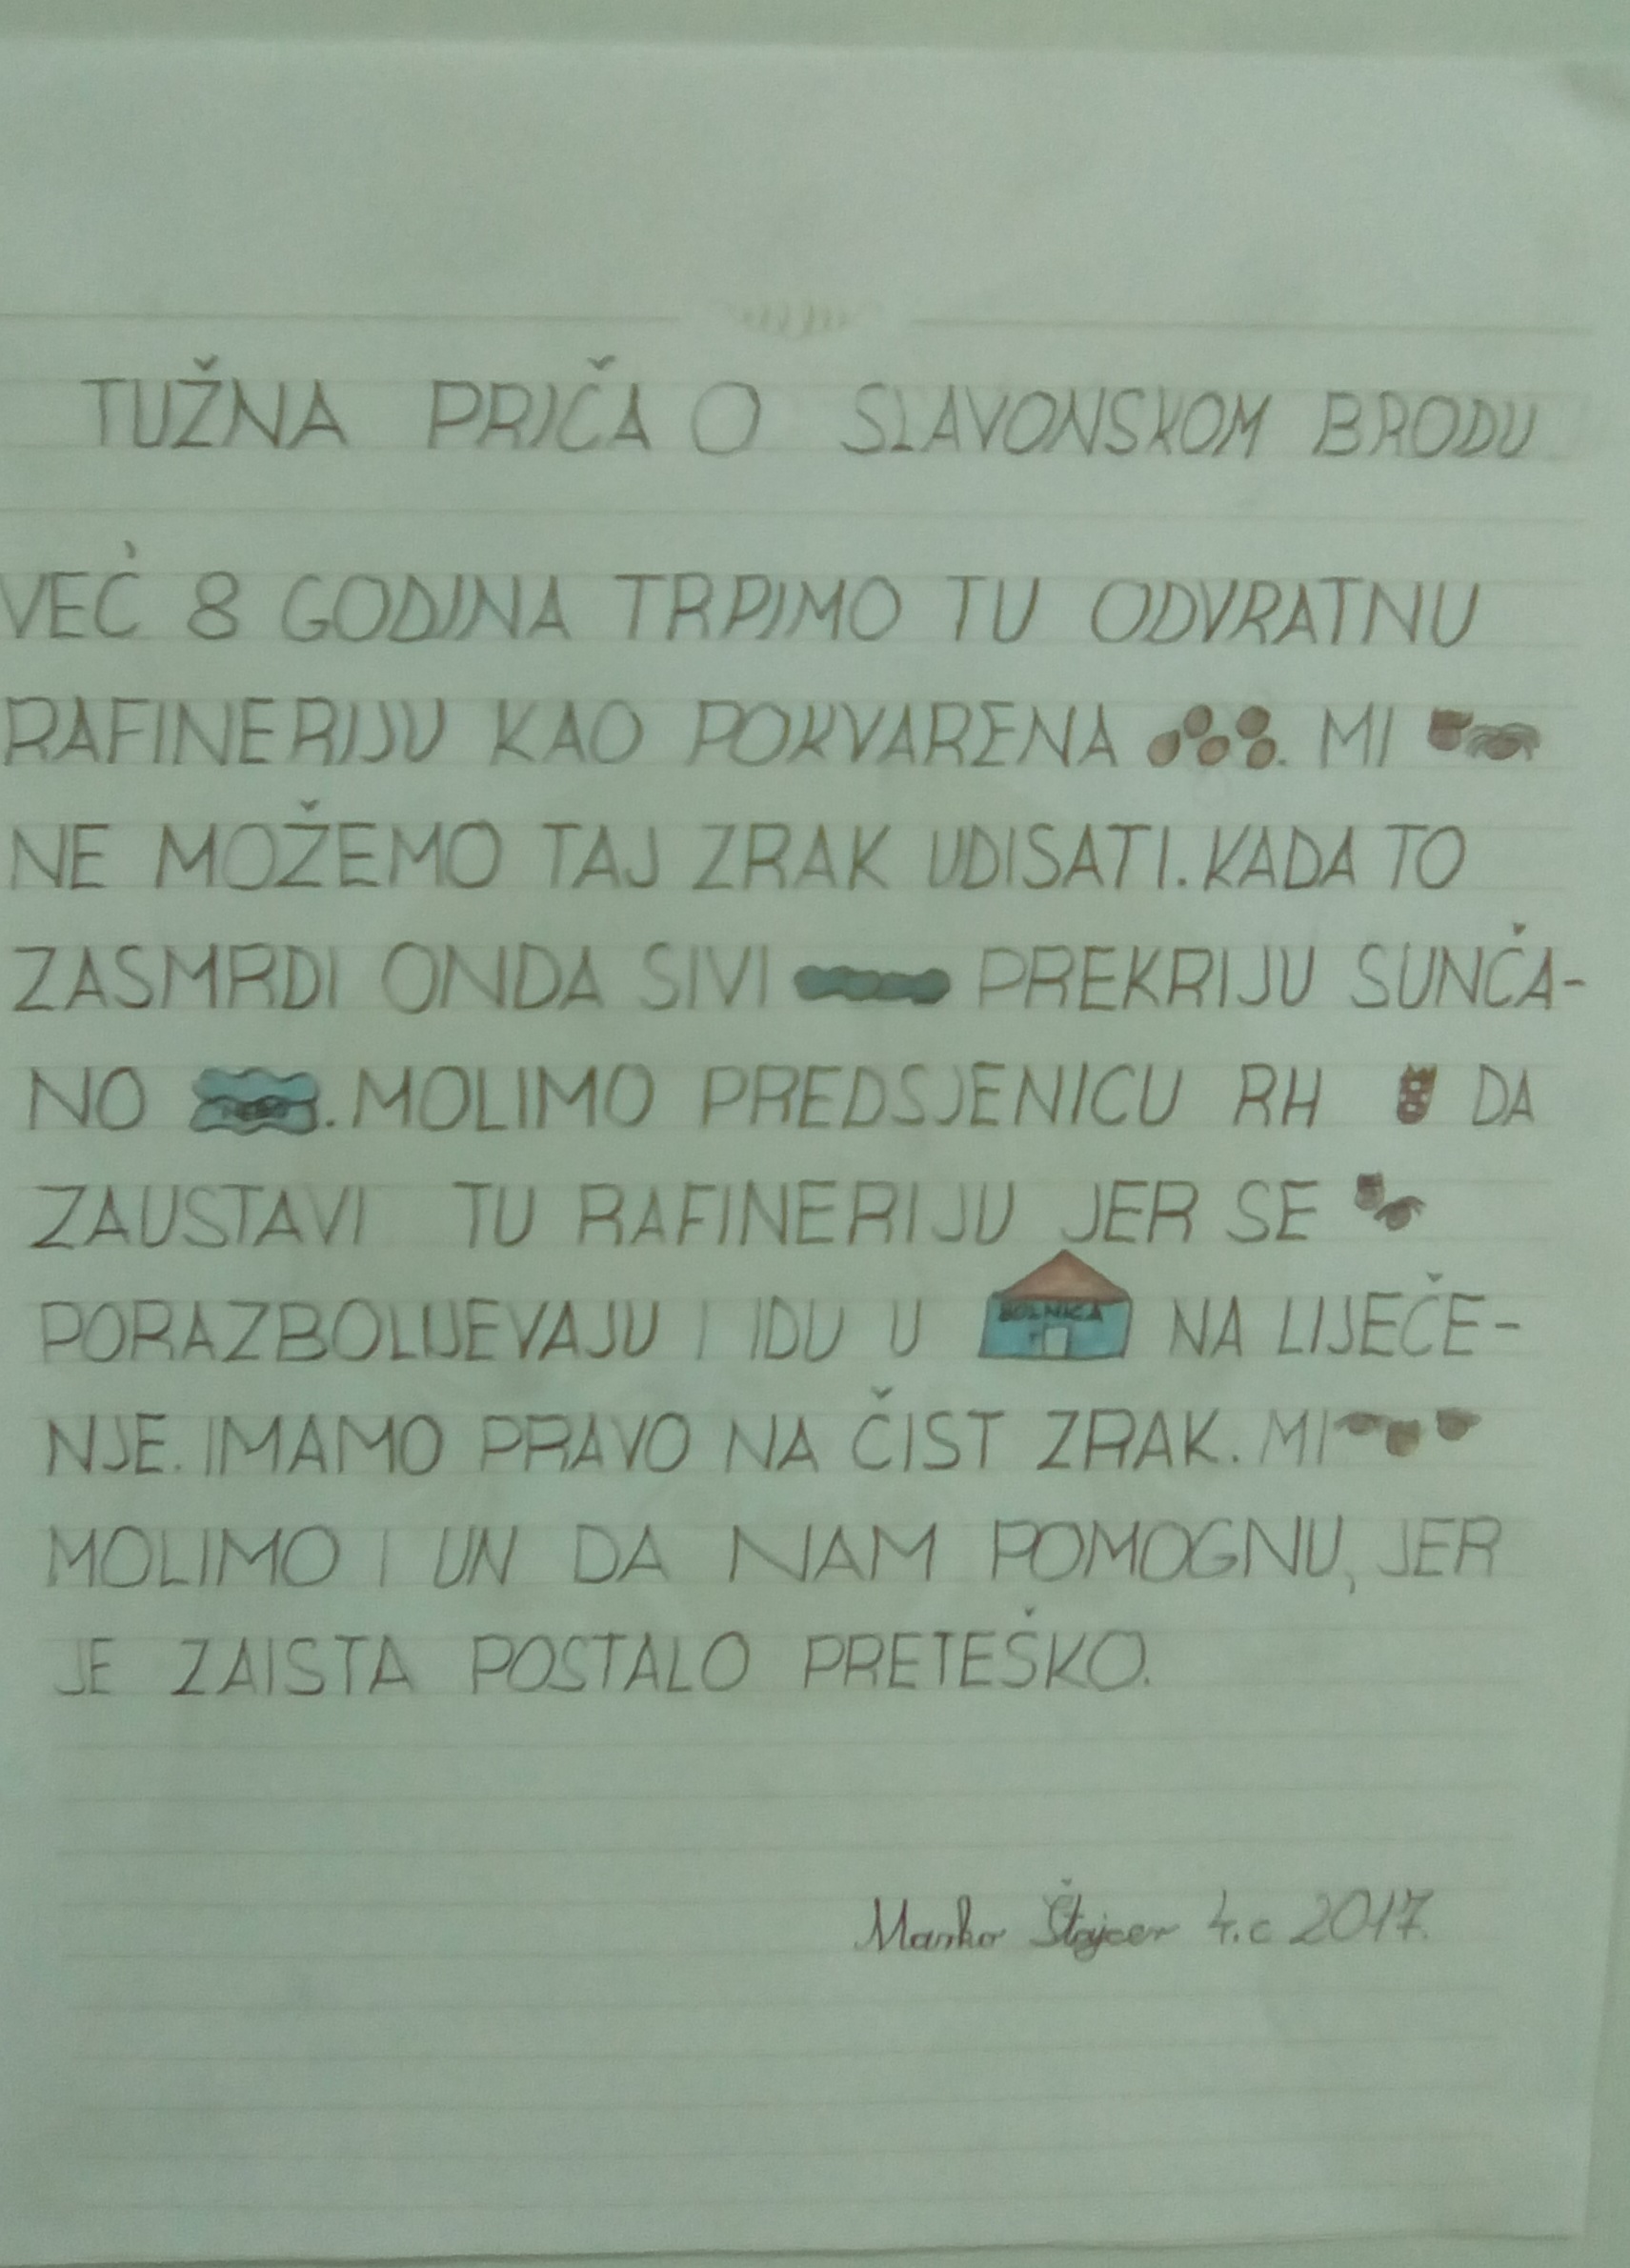 TUŽNA PRIČA O SLAVONSKOM BRODU
VEĆ 8 GODINA TRPIMO TU ODVRATNU
RAFINERIJU KAO POKVARENA . MI
NE MOŽEMO TAJ ZRAK UDISATI. KADA TO
ZASMRDI ONDA SIVI PREKRIJU SUNČA-
NO NEBO. MOLIMO PREDSJENICU RH DA
ZAUSTAVI TU RAFINERIJU JER SE
PORAZBOLIJEVAJU I IDU U BOLNICA NA LIJEČE-
NJE. IMAMO PRAVO NA ČIST ZRAK. MI
MOLIMO I UN DA NAM POMOGNU, JER
JE ZAISTA POSTALO PRETEŠKO.
Marko Štajcer 4.c 2017.